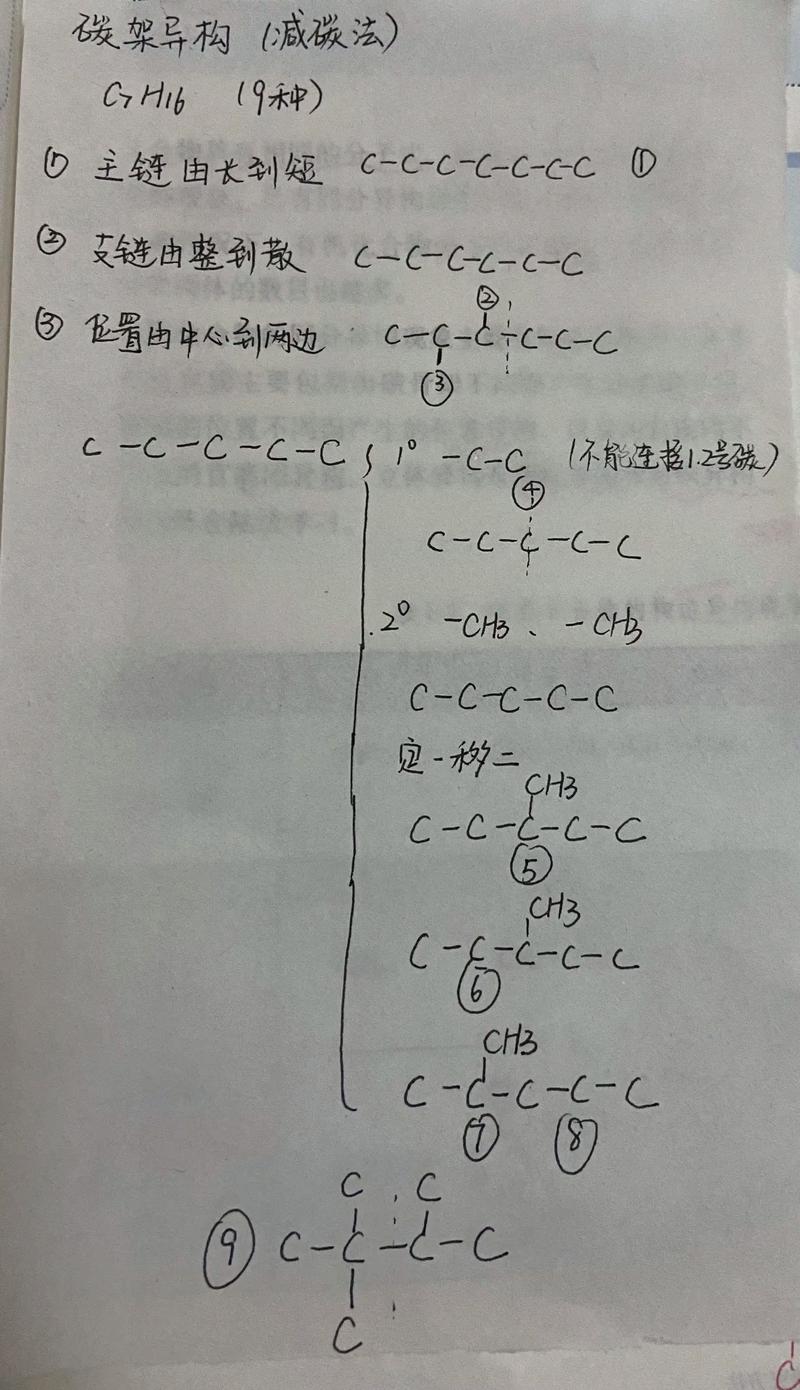 碳架异构 (减碳法)
C7H16 (9种)
① 主链由长到短 C-C-C-C-C-C-C ①
② 支链由整到散 C-C-C-C-C-C
②
③ 位置由中心到两边 C-C-C-C-C-C
③
C-C-C-C-C { 1° -C-C (不能连接1.2号碳)
④
C-C-C-C-C
2° -CH3、-CH3
C-C-C-C-C
定一移二
CH3
C-C-C-C-C
⑤
CH3
C-C-C-C-C
⑥
CH3
C-C-C-C-C
⑦ ⑧
C C
⑨ C-C-C-C
C
C